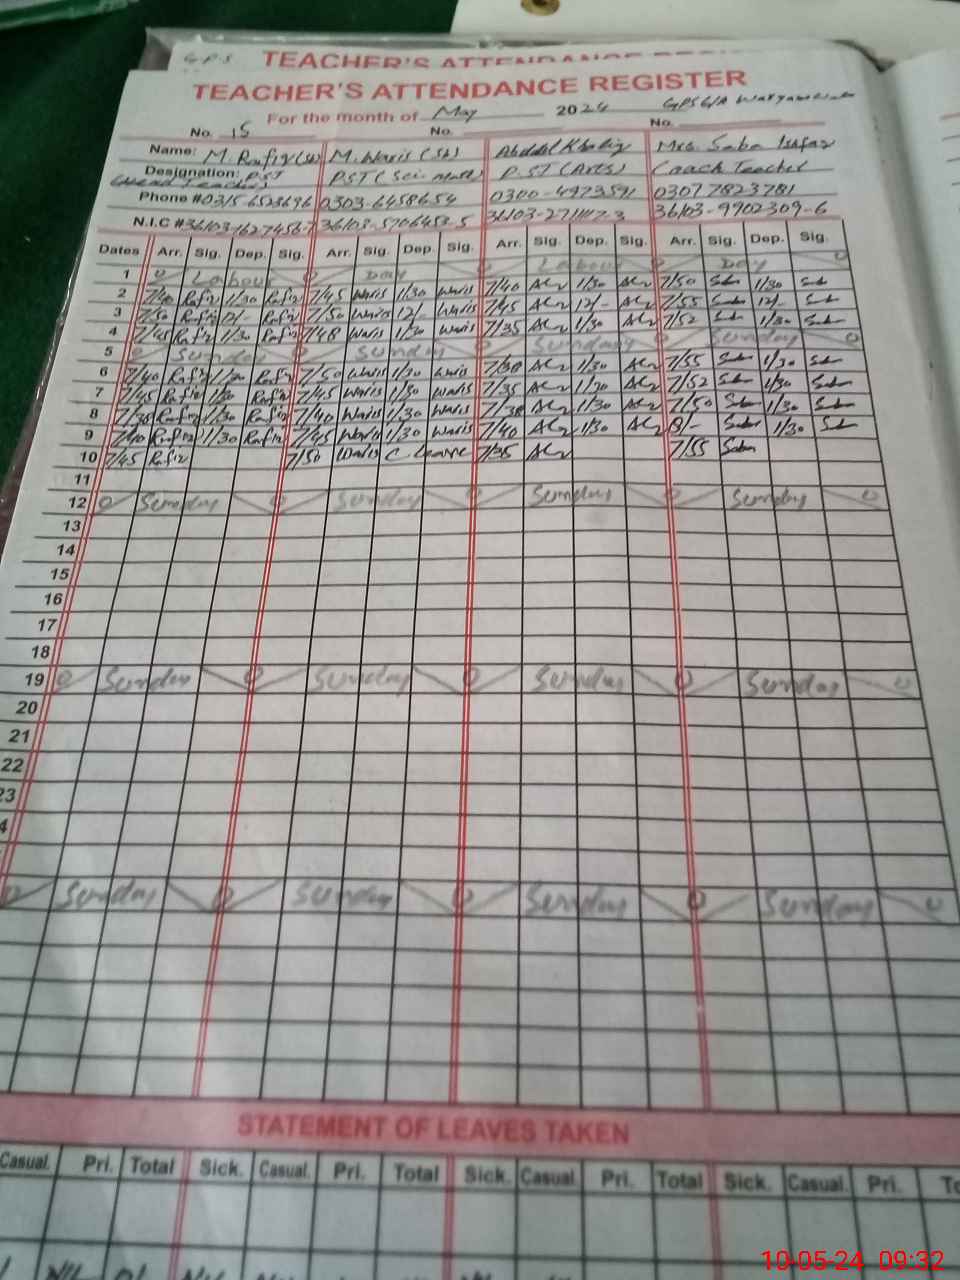 GPS TEACHER'S ATTENDANCE REGIS
TEACHER'S ATTENDANCE REGISTER
For the month of May 2024
No. 15 No. No.
Name: M. Rafiq (Sb) M. Waris (Sb) Abdul Khaliq Mrs. Saba Ishfaq
Designation: PST PST (Sci. Math) P.ST (Arts) Coach Teacher
(Head Teacher)
Phone # 0315-6523696 0303-6458654 0300-4973591 0307 7823781
N.I.C # 36103-1627456-7 36103-5706453-5 36103-2711107-3 36103-9902309-6
Dates Arr. Sig. Dep. Sig. Arr. Sig. Dep. Sig. Arr. Sig. Dep. Sig. Arr. Sig. Dep. Sig.
1 Labour Day Labour Day
2 7/40 Rafiq 1/30 Rafiq 7/45 Waris 1/30 Waris 7/40 1/30 7/50 Saba 1/30
3 7/50 Rafiq 12/- Rafiq 7/50 Waris 12/- Waris 7/45 12/- 7/55 12/-
4 7/45 Rafiq 1/30 Rafiq 7/48 Waris 1/30 Waris 7/35 1/30 7/52 1/30
5 Sunday Sunday Sunday Sunday
6 7/40 Rafiq 1/30 Rafiq 7/50 Waris 1/30 Waris 7/38 1/30 7/55 1/30
7 7/45 Rafiq 1/30 Rafiq 7/45 Waris 1/30 Waris 7/35 1/30 7/52 1/30
8 7/38 Rafiq 1/30 Rafiq 7/40 Waris 1/30 Waris 7/38 1/30 7/50 1/30
9 7/40 Rafiq 1/30 Rafiq 7/45 Waris 1/30 Waris 7/40 1/30 8/- Saba 1/30
10 7/45 Rafiq 7/50 Waris C. Leave 7/35 7/55 Saba
11
12 Sunday Sunday Sunday Sunday
13
14
15
16
17
18
19 Sunday Sunday Sunday Sunday
20
21
22
23
4
Sunday Sunday Sunday Sunday
STATEMENT OF LEAVES TAKEN
Casual. Pri. Total Sick. Casual. Pri. Total Sick. Casual. Pri. Total Sick. Casual. Pri. To
10-05-24 09:32